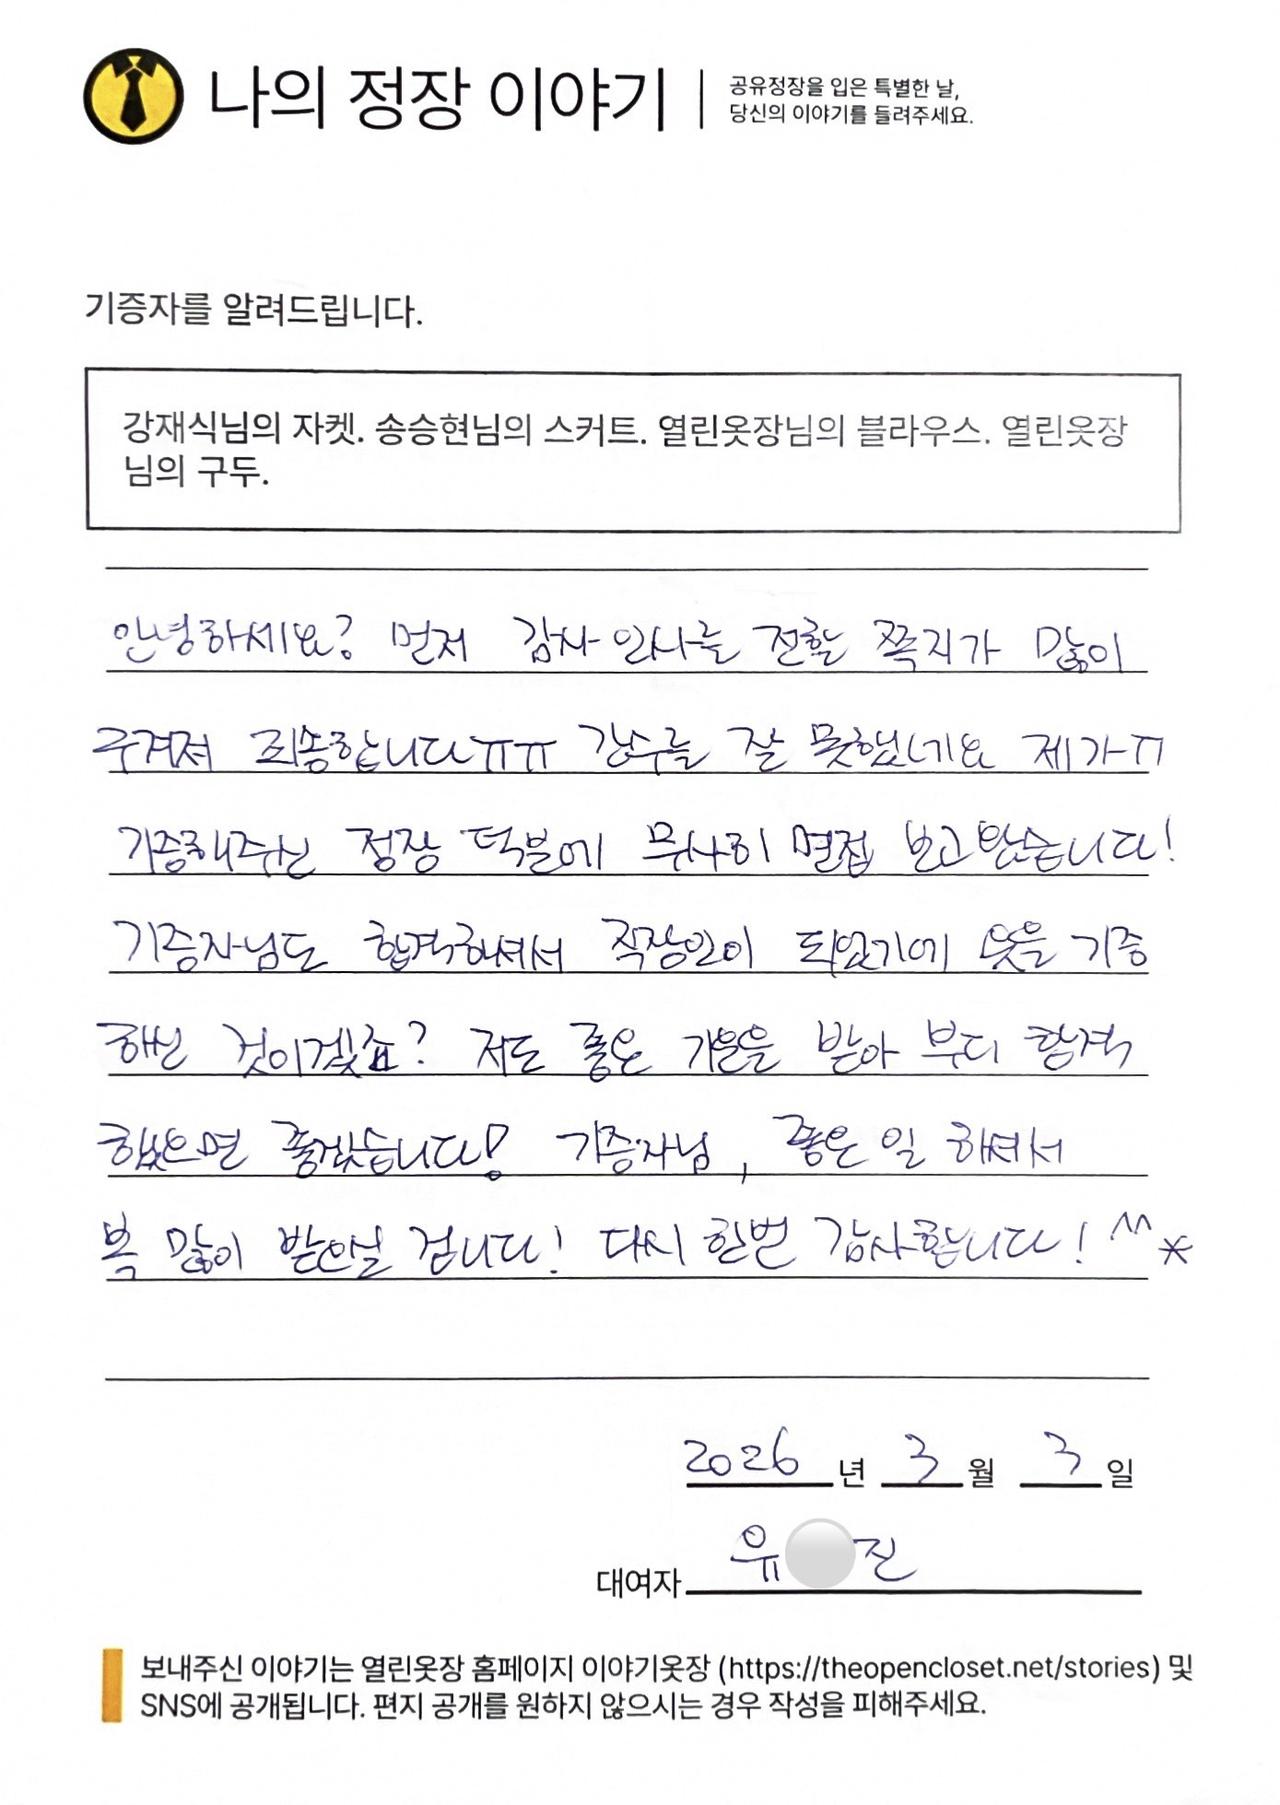 나의 정장 이야기
공유정장을 입은 특별한 날,
당신의 이야기를 들려주세요.
기증자를 알려드립니다.
강재식님의 자켓. 송승현님의 스커트. 열린옷장님의 블라우스. 열린옷장
님의 구두.
안녕하세요? 먼저 감사 인사를 전할 쪽지가 많이
구겨져 죄송합니다ㅠㅠ 간수를 잘 못했네요 제가ㅠ
기증해주신 정장 덕분에 무사히 면접 보고 왔습니다!
기증자님도 합격하셔서 직장인이 되었기에 옷을 기증
하신 것이겠죠? 저도 좋은 기운을 받아 부디 합격
했으면 좋겠습니다! 기증자님, 좋은 일 하셔서
복 많이 받으실 겁니다! 다시 한번 감사합니다! ^^*
2026년 3월 3일
대여자 유 진
보내주신 이야기는 열린옷장 홈페이지 이야기옷장 (https://theopencloset.net/stories) 및
SNS에 공개됩니다. 편지 공개를 원하지 않으시는 경우 작성을 피해주세요.